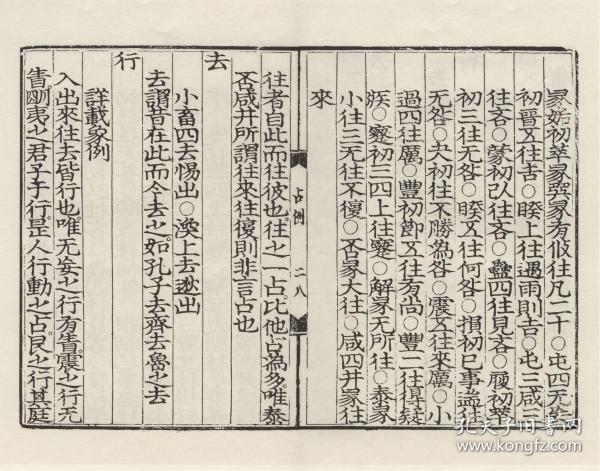 彖姤初萃彖巽彖有攸往凡二十○屯四无
初晉五往吉○睽上往遇雨則吉○屯三咸三
往吝○蒙初以往吝○蠱四往見吝○履初萃
初三往无咎○睽五往何咎○損初已事遄往
无咎○夬初往不勝為咎○震五往來厲○小
過四往厲○豐初節五往有尚○豐二往得疑
疾○蹇初三四上往蹇○解彖无所往○泰彖
小往三无往不復○否彖大往○咸四井彖往
來
往者自此而往彼也。往之一占比他占為多。唯泰
否咸井所謂往來往復則非言占也
去
小畜四去惕出○渙上去逖出
去謂昔在此而今去之。如孔子去齊去魯之去
行
詳載彖例
入出來往去皆行也。唯无妄之行有眚。震之行无
眚。明夷之君子于行。是人行動之占。艮之行其庭
占例
二八
孔夫子旧书网
www.kongfz.com